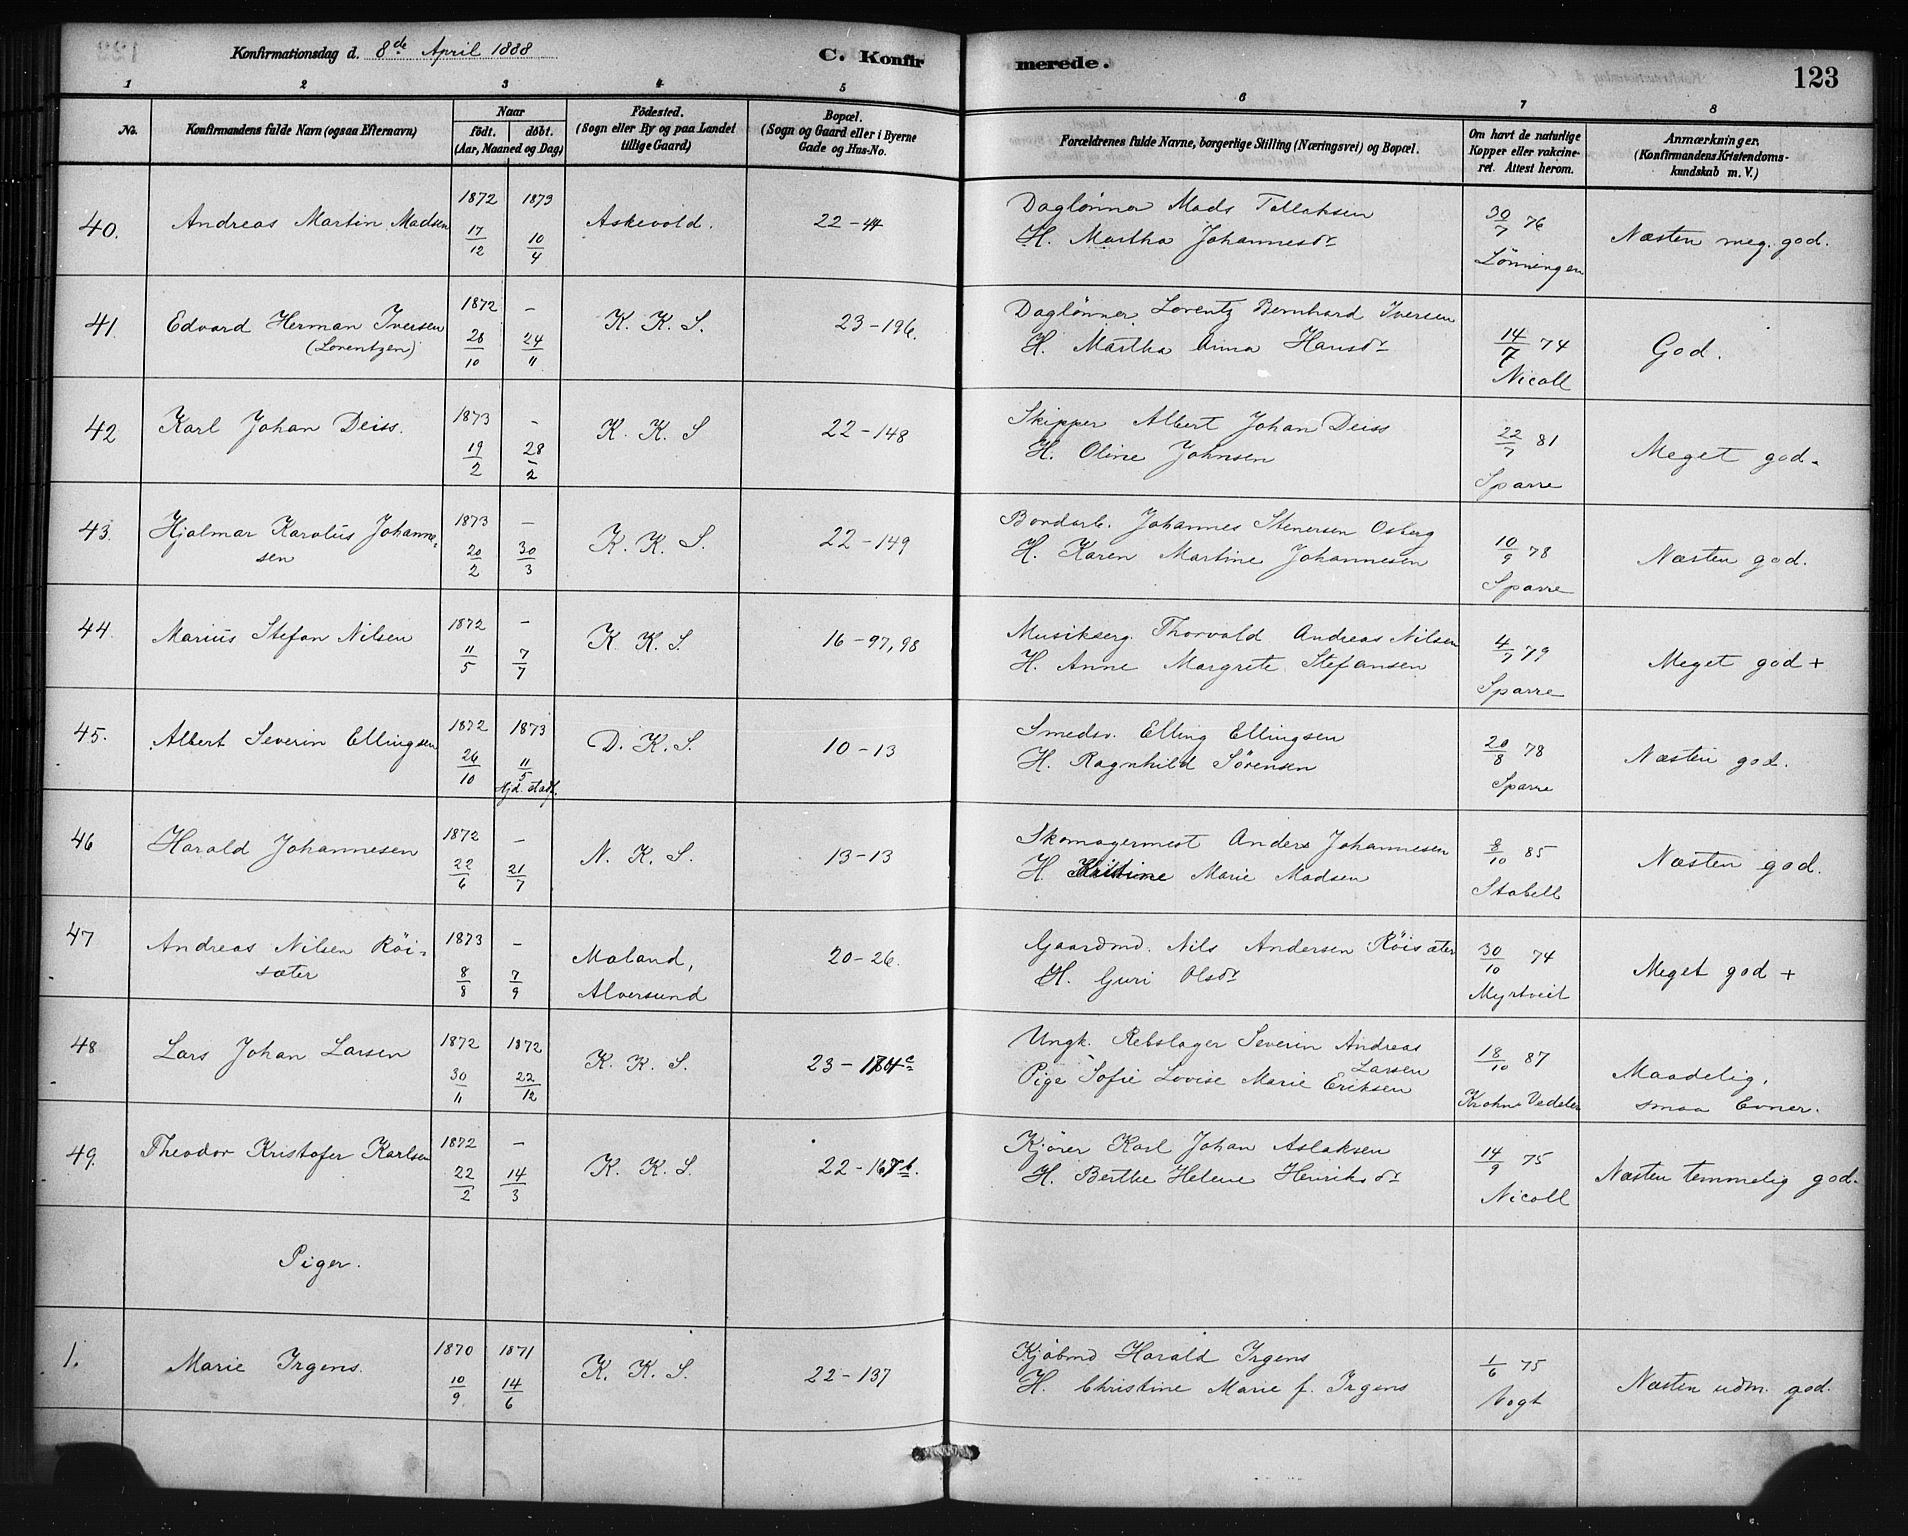 Konfirmationsdag d. 8de April 1888
C. Konfirmerede.
123
1 2 3 4 5 6 7 8
No.
Konfirmandens fulde Navn (ogsaa Efternavn)
Naar
født. døbt.
(Aar, Maaned og Dag)
Fødested.
(Sogn eller By og paa Landet
tillige Gaard)
Bopæl.
(Sogn og Gaard eller i Byerne
Gade og Hus-No.
Forældrenes fulde Navne, borgerlige Stilling (Næringsvei) og Bopæl.
Om havt de naturlige
Kopper eller vakcine-
ret. Attest herom.
Anmærkninger.
(Konfirmandens Kristendoms-
kundskab m. V.)
40. Andreas Martin Madsen 1872 17/12 1873 10/4 Askevold. 22-44
Daglønner Mads Tollaksen
H. Martha Johannesdr
30/7 76
Lønningen
Næsten meg. god.
41. Edvard Herman Iversen
(Lorentzen)
1872 20/10 - 24/11 K. K. S. 23-196.
Daglønner Lorentz Bernhard Iversen
H. Martha Anna Hansdr
14/7 74
Nicoll
God.
42 Karl Johan Deiss. 1873 19/2 - 28/2 K. K. S 22-148
Skipper Albert Johan Deiss
H. Oline Johnsen
22/7 81
Sparre
Meget god.
43. Hjalmar Karolus Johanne-
sen
1873 20/2 - 30/3 K. K. S. 22-149
Bordarb. Johannes Stenersen Osberg
H. Karen Martine Johannesen
10/9 78
Sparre
Næsten god.
44. Marius Stefan Nilsen 1872 11/5 - 7/7 K. K. S. 16-97,98
Musikserg. Thorvald Andreas Nilsen
H. Anne Margrete Stefansen
4/7 79
Sparre
Meget god +
45. Albert Severin Ellingsen 1872 26/10 1873 11/5
hjd. stadf.
D. K. S. 10-13
Smedsv. Elling Ellingsen
H. Ragnhild Sørensen
20/8 78
Sparre
Næsten god.
46 Harald Johannesen 1872 22/6 - 21/7 N. K. S. 13-13
Skomagermest Anders Johannesen
H. Kristine Marie Madsen
8/10 85
Stabell
Næsten god.
47 Andreas Nilsen Røi-
sæter
1873 8/8 - 7/9 Moland,
Alversund
20-26.
Gaardmd. Nils Andersen Røisæter
H. Guri Olsdr
30/10 74
Myrtveit
Meget god +
48 Lars Johan Larsen 1872 30/11 1872 22/12 K. K. S. 23-184c
Ungk. Rebslager Severin Andreas
Larsen
Pige Sofie Lovise Marie Eriksen
18/10 87
Krohn Vedeler
Maadelig,
smaa Evner.
49. Theodor Kristofer Karlsen 1872 22/2 - 14/3 K. K. S 22-167b.
Kjører Karl Johan Aslaksen
H. Berthe Helene Henriksdr
14/9 75
Nicoll
Næsten temmelig god.
Piger.
1. Marie Irgens. 1870 10/9 1871 14/6 K. K. S. 22-137
Kjøbmd Harald Irgens
H. Christine Marie f. Irgens
1/6 75
Vogt
Næsten udm. god.